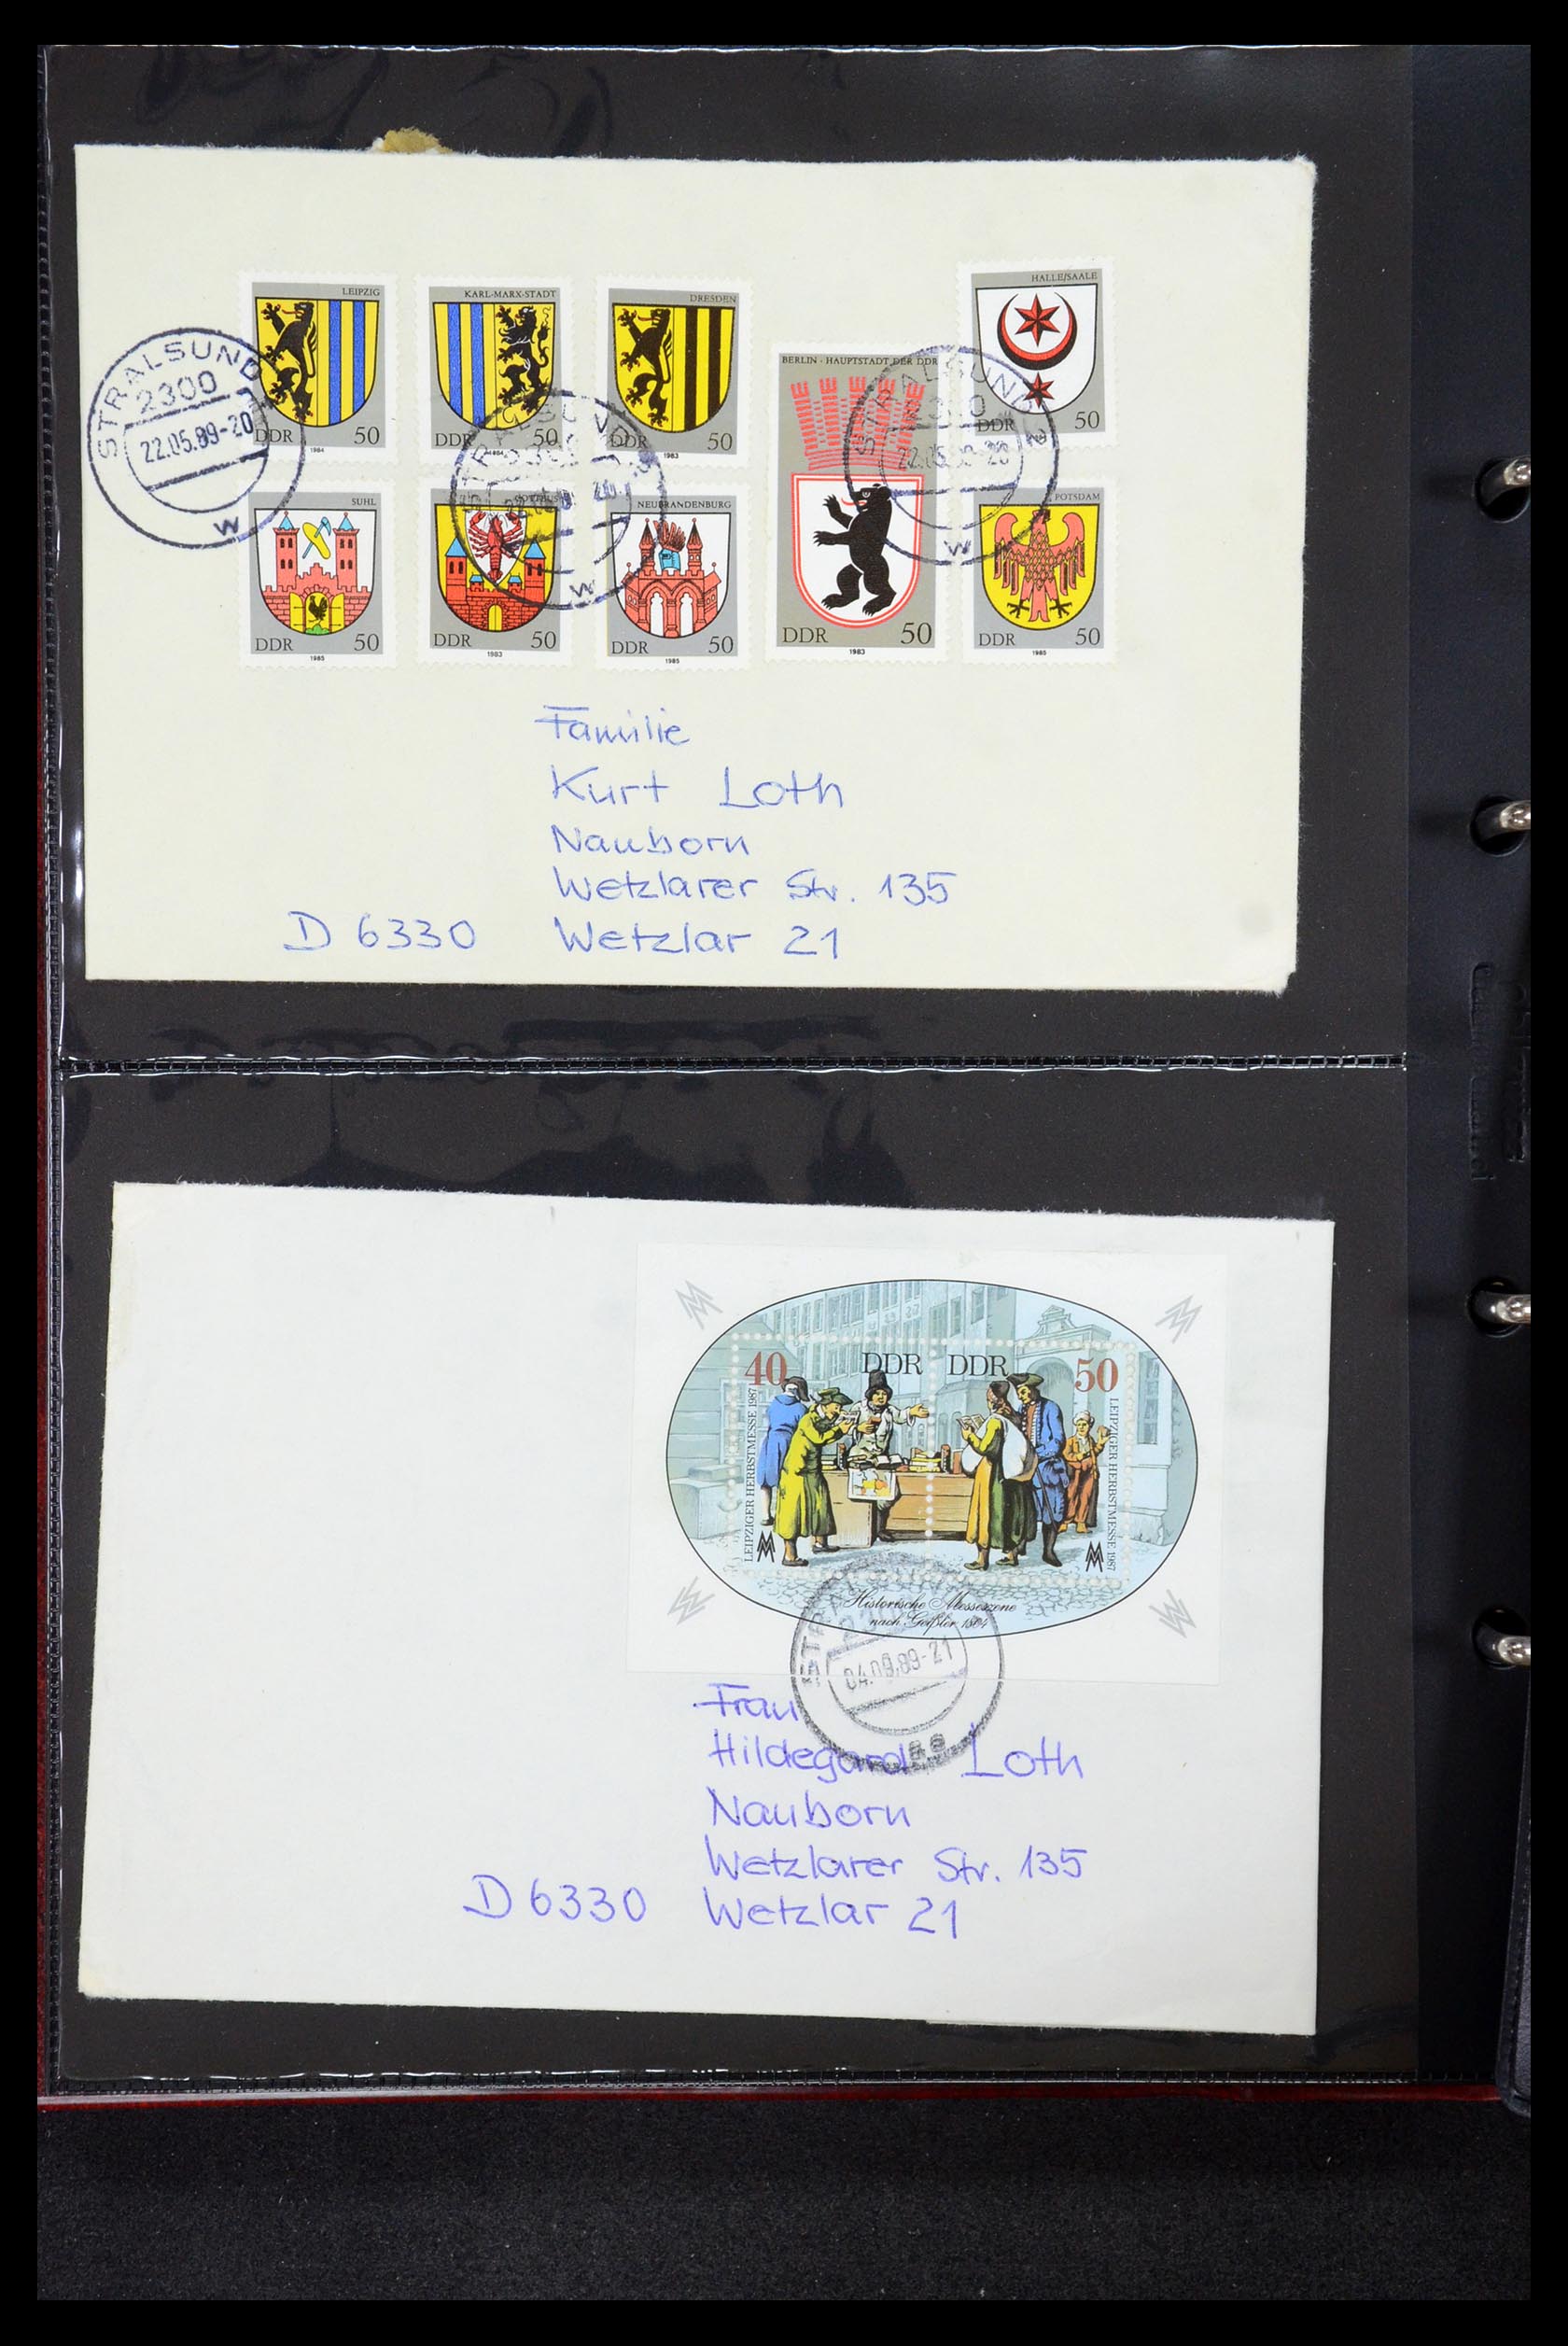 LEIPZIG
DDR 50
1984
KARL-MARX-STADT
DDR 50
1984
DRESDEN
DDR 50
1983
BERLIN · HAUPTSTADT DER DDR
DDR 50
1983
HALLE/SAALE
DDR 50
SUHL
DDR 50
1985
DDR 50
1983
NEUBRANDENBURG
DDR 50
1985
POTSDAM
DDR 50
1985
STRALSUND
2300
22.05.89-20
w
STRALSUND
w
STRALSUND
2300
22.05.89-20
w
Familie
Kurt Loth
Nauborn
Wetzlarer Str. 135
D 6330 Wetzlar 21
40 DDR
LEIPZIGER HERBSTMESSE 1987
DDR 50
LEIPZIGER HERBSTMESSE 1987
Historische Messeszene
nach Geißler 1804
04.09.89-21
Frau
Hildegard Loth
Nauborn
Wetzlarer Str. 135
D 6330 Wetzlar 21